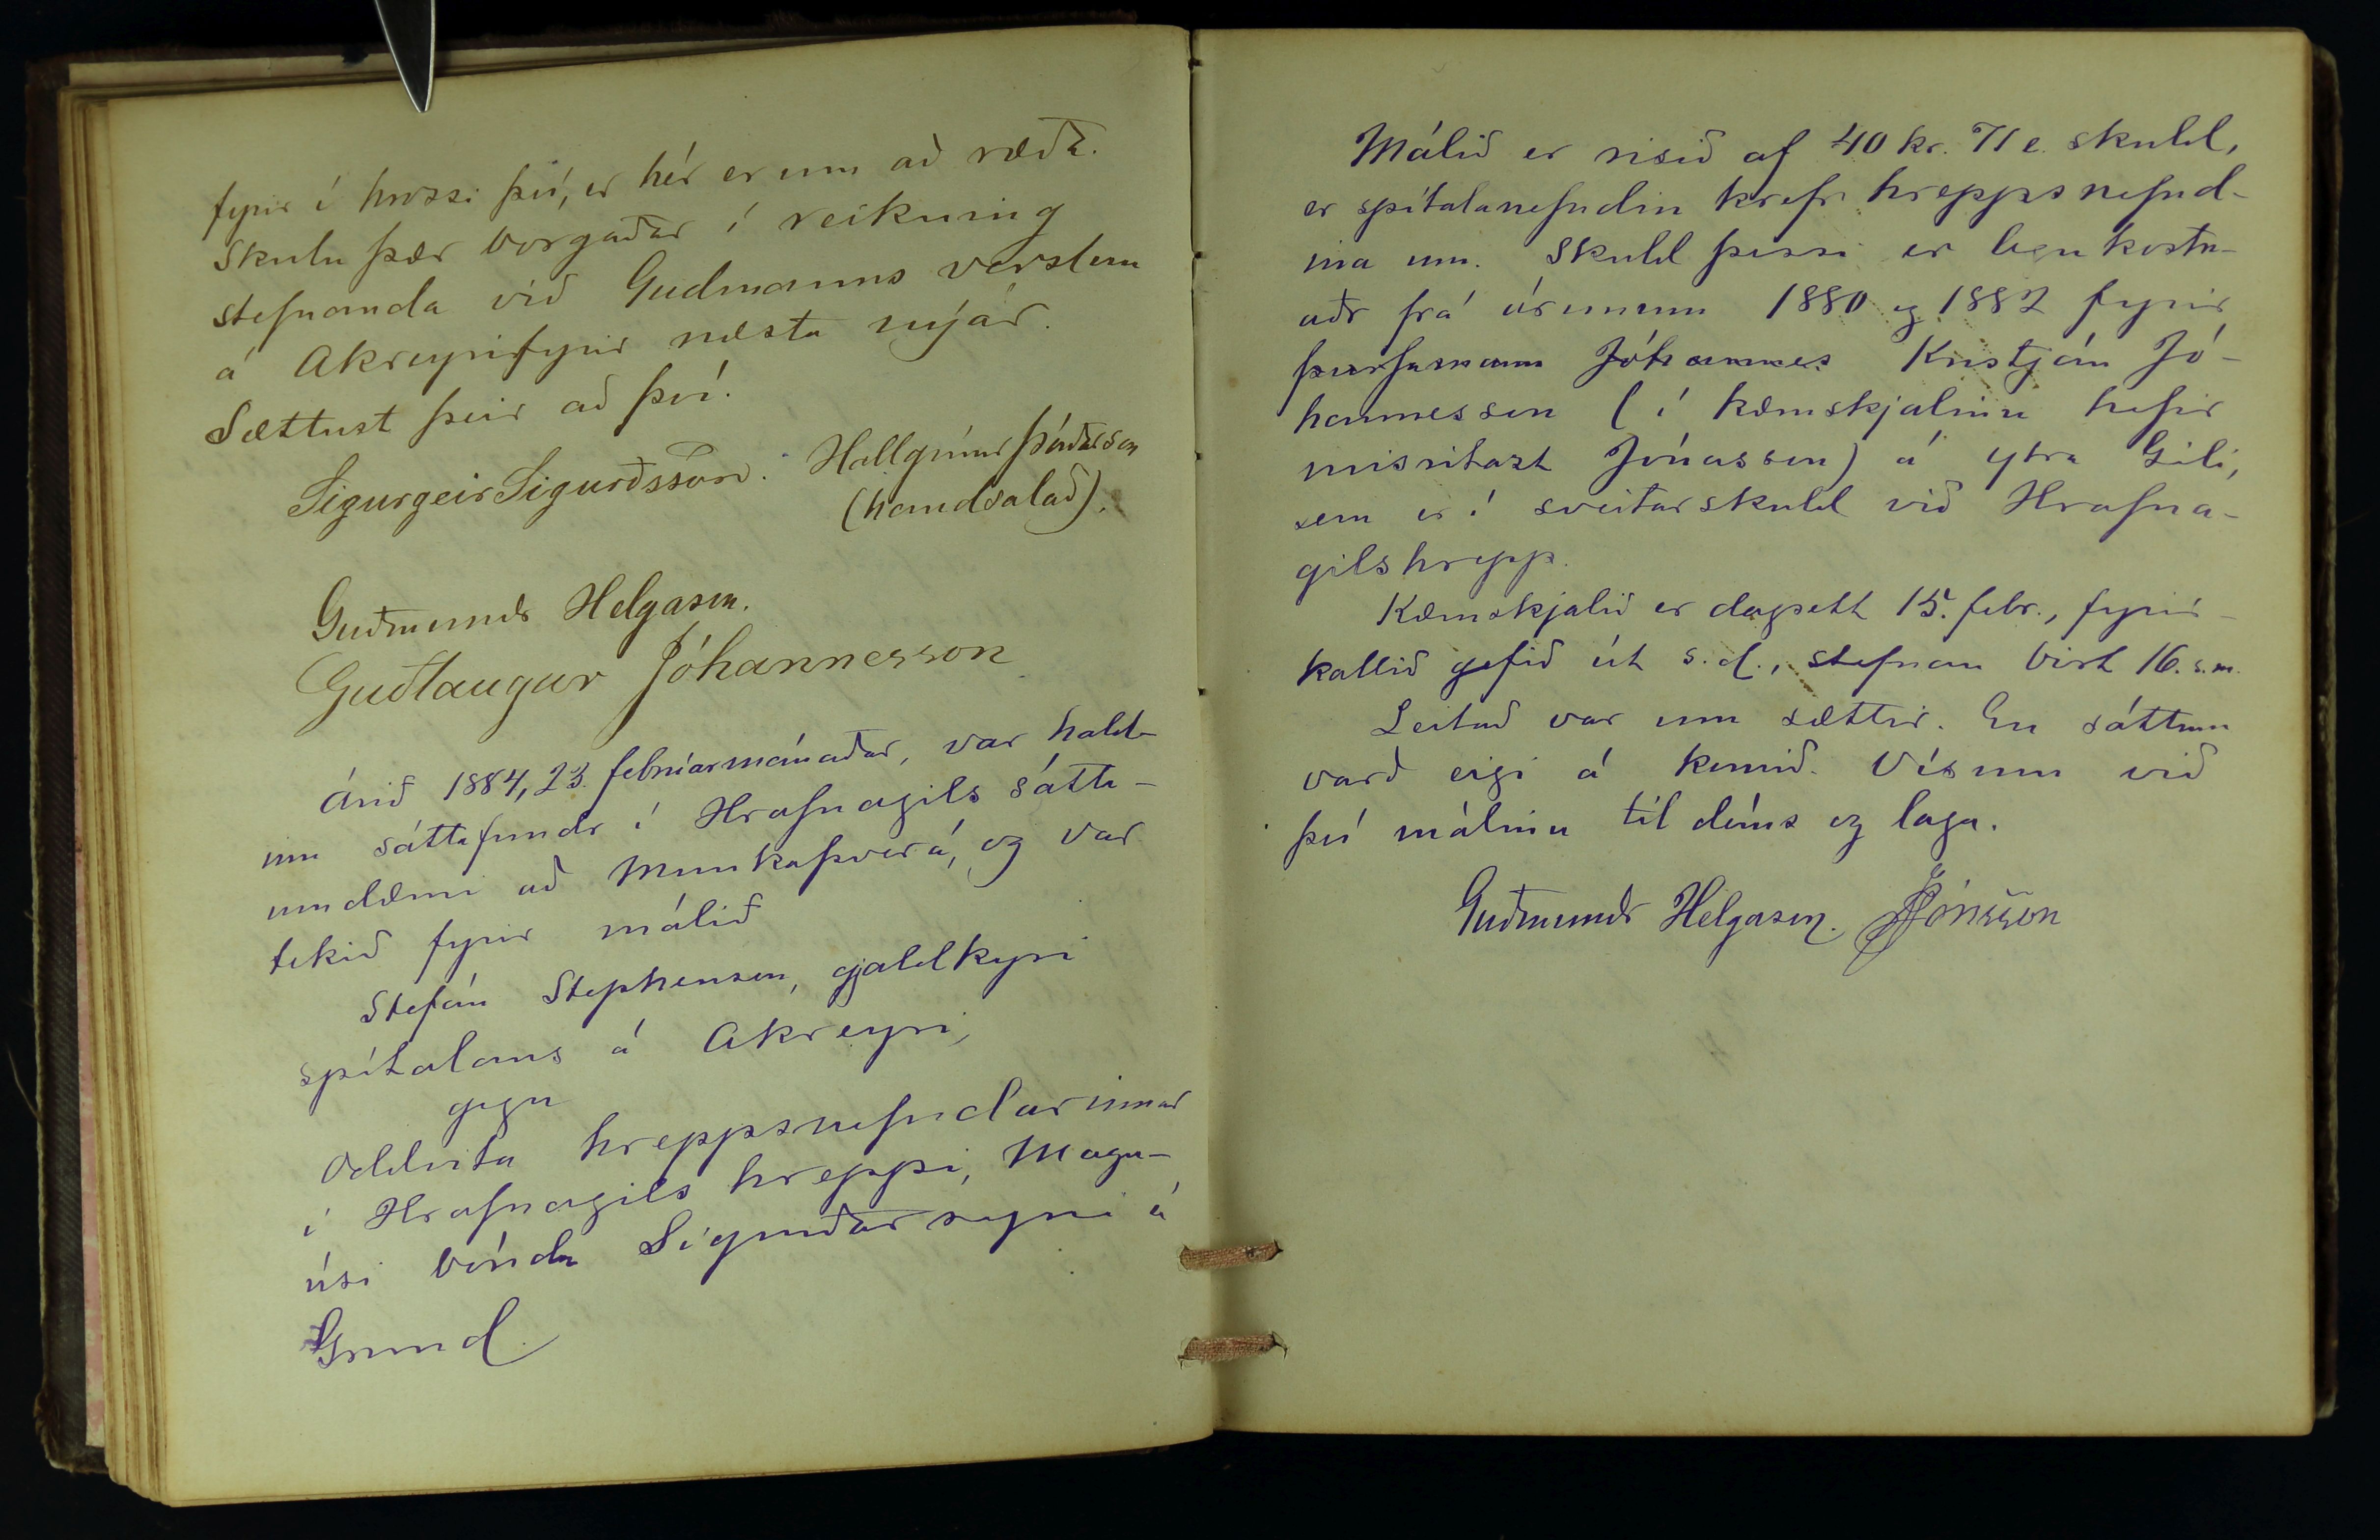 fyrir í hrossi því, er hér er um að ræða.
skulu þær borgaðar í reikning
stefnanda við Gudmanns verslun
á Akreyri fyrir næsta nýár.
Sættust þeir að því.
Sigurgeir Sigurðsson. Hallgrímur Þórðarson
(handsalað).
Guðmundr Helgason.
Guðlaugur Jóhannesson
Árið 1884, 23. febrúarmánaðar, var hald-
inn sáttafundr í Hrafnagils sátta-
umdæmi að Munkaþverá, og var
tekið fyrir málið
Stefán Stephensen, gjaldkyri
spítalans á Akreyri,
gegn
Oddvita hreppsnefndarinnar
í Hrafnagils hreppi, Magn-
úsi bónda Sigurðarsyni á
Grund.
Málið er risið af 40 kr. 71 e. skuld,
er spítalanefndin krefr hreppsnefnd-
ina um. Skuld þessi er legukostn-
aðr frá árunum 1880 og 1882 fyrir
þurfamann Jóhannes Kristján Jó-
hannesson (í kæruskjalinu hefir
misritazt Jónasson) á ytra Gili,
sem er í sveitarskuld við Hrafna-
gilshrepp.
Kæruskjalið er dagsett 15. febr., fyrir-
kallið gefið út s.d., stefnan birt 16. s.m.
Leitað var um sættir. En sáttum
varð eigi á komið. Vísum við
því málinu til dóms og laga.
Guðmundr Helgason. Jónsson